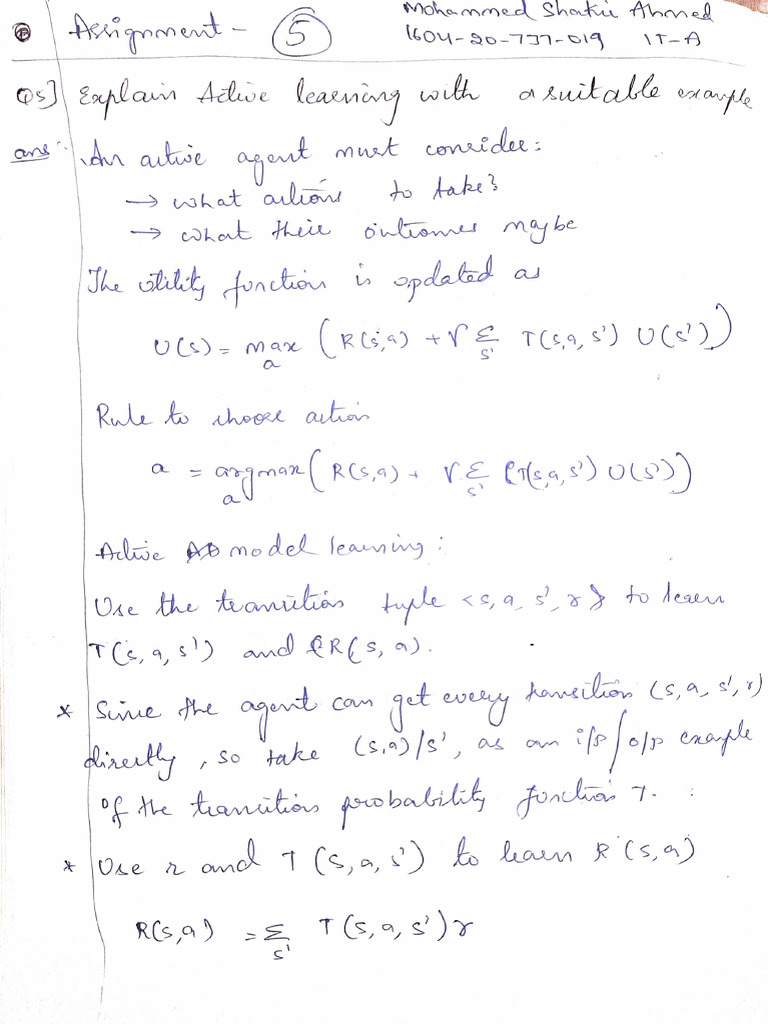 Assignment - 5
Mohammed Shakir Ahmed
1604-20-737-019 IT-A
Q5] Explain Active learning with a suitable example
ans: An active agent must consider:
→ what actions to take?
→ what their outcomes maybe
The utility function is updated as
U(s) = max_a (R(s,a) + γ Σ_s' T(s,a,s') U(s'))
Rule to choose action
a = argmax_a (R(s,a) + γ Σ_s' (T(s,a,s') U(s'))
Active model learning:
Use the transition tuple <s, a, s', r> to learn
T(s, a, s') and R(s, a).
* Since the agent can get every transition (s, a, s', r)
directly, so take (s,a)/s', as an i/p / o/p example
of the transition probability function T.
* Use r and T (s, a, s') to learn R (s, a)
R(s,a) = Σ_s' T(s, a, s') r